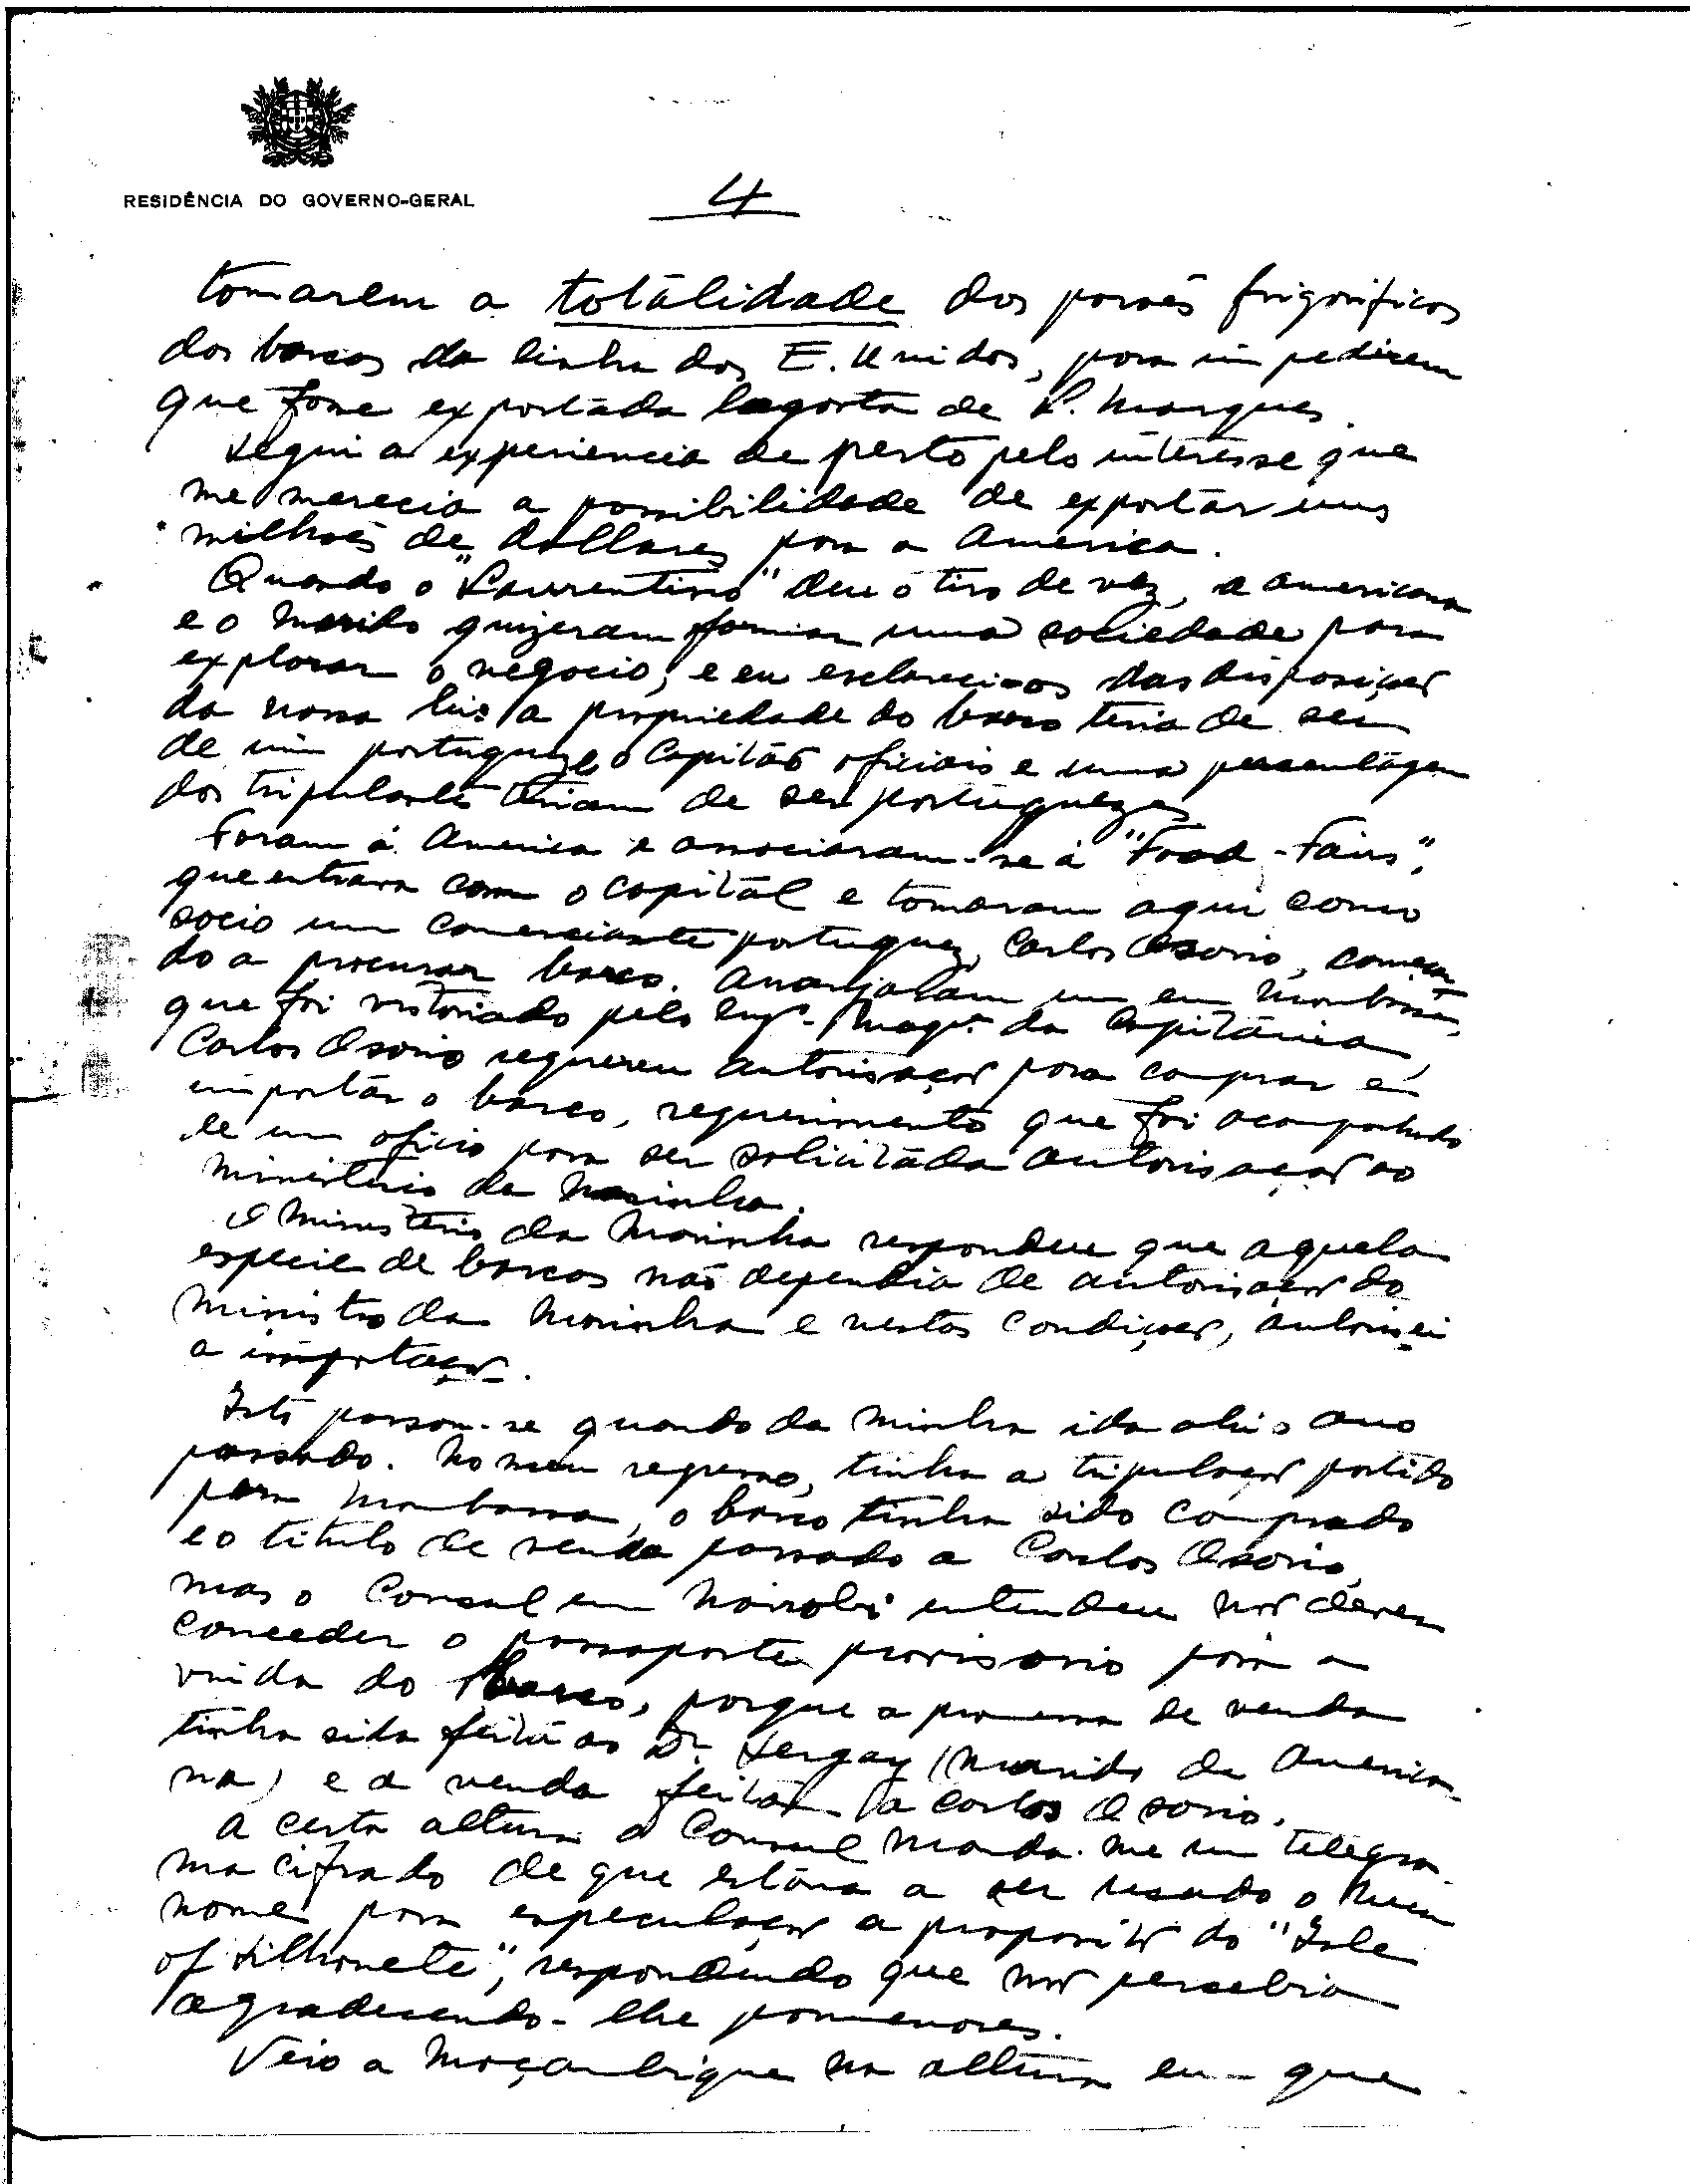 RESIDÊNCIA DO GOVERNO-GERAL
4
tomarem a totalidade dos porões frigorificos
dos barcos da linha dos E. Unidos, para impedirem
que fosse exportada lagosta de L. Marques.
Segui a experiencia de perto pelo interesse que
me merecia a possibilidade de exportar uns
milhões de dollares para a America.
Quando o "Laurentino" deu o tiro de vez, a americana
e o marido quizeram formar uma sociedade para
explorar o negocio, e eu esclareci-os das disposições
da nossa lei: a propriedade do barco teria de ser
de um portuguez, o Capitão oficiais e uma percentagem
dos tripulantes teriam de ser portuguezes.
Foram á America e associaram-se á "Food-Fairs",
que entrava com o capital e tomaram aqui como
socio um comerciante portuguez, Carlos Osorio, começan
do a procurar barco. Arranjaram um em Mombassa,
que foi vistoriado pelo Engº. Maqª. da Capitania,
Carlos Osorio requereu autorisação para comprar e
importar o barco, requerimento que foi acompanhado
de um oficio para ser solicitada autorisação ao
Ministerio da Marinha.
O Ministerio da Marinha respondeu que aquela
especie de barcos não dependia de autorisação do
Ministro da Marinha e nestas condições, autorisei
a importação.
Isto passou-se quando da minha ida ahi o ano
passado. No meu regresso, tinha a tripulação partido
para Mombassa, o barco tinha sido comprado
e o titulo de venda passado a Carlos Osorio,
mas o Consul em Nairobi entendeu não dever
conceder o passaporte provisorio para a
vinda do barco, porque a promessa de venda
tinha sido feita ao Dr. Sergay (marido da America-
na) e a venda feita a Carlos Osorio.
A certa altura o Consul manda-me um telegra-
ma cifrado de que estava a ser usado o meu
nome para especulação a proposito do "Isle
of Silhouete", respondendo que não percebia
agradecendo-lhe pormenores.
Veio a Moçambique na altura em que